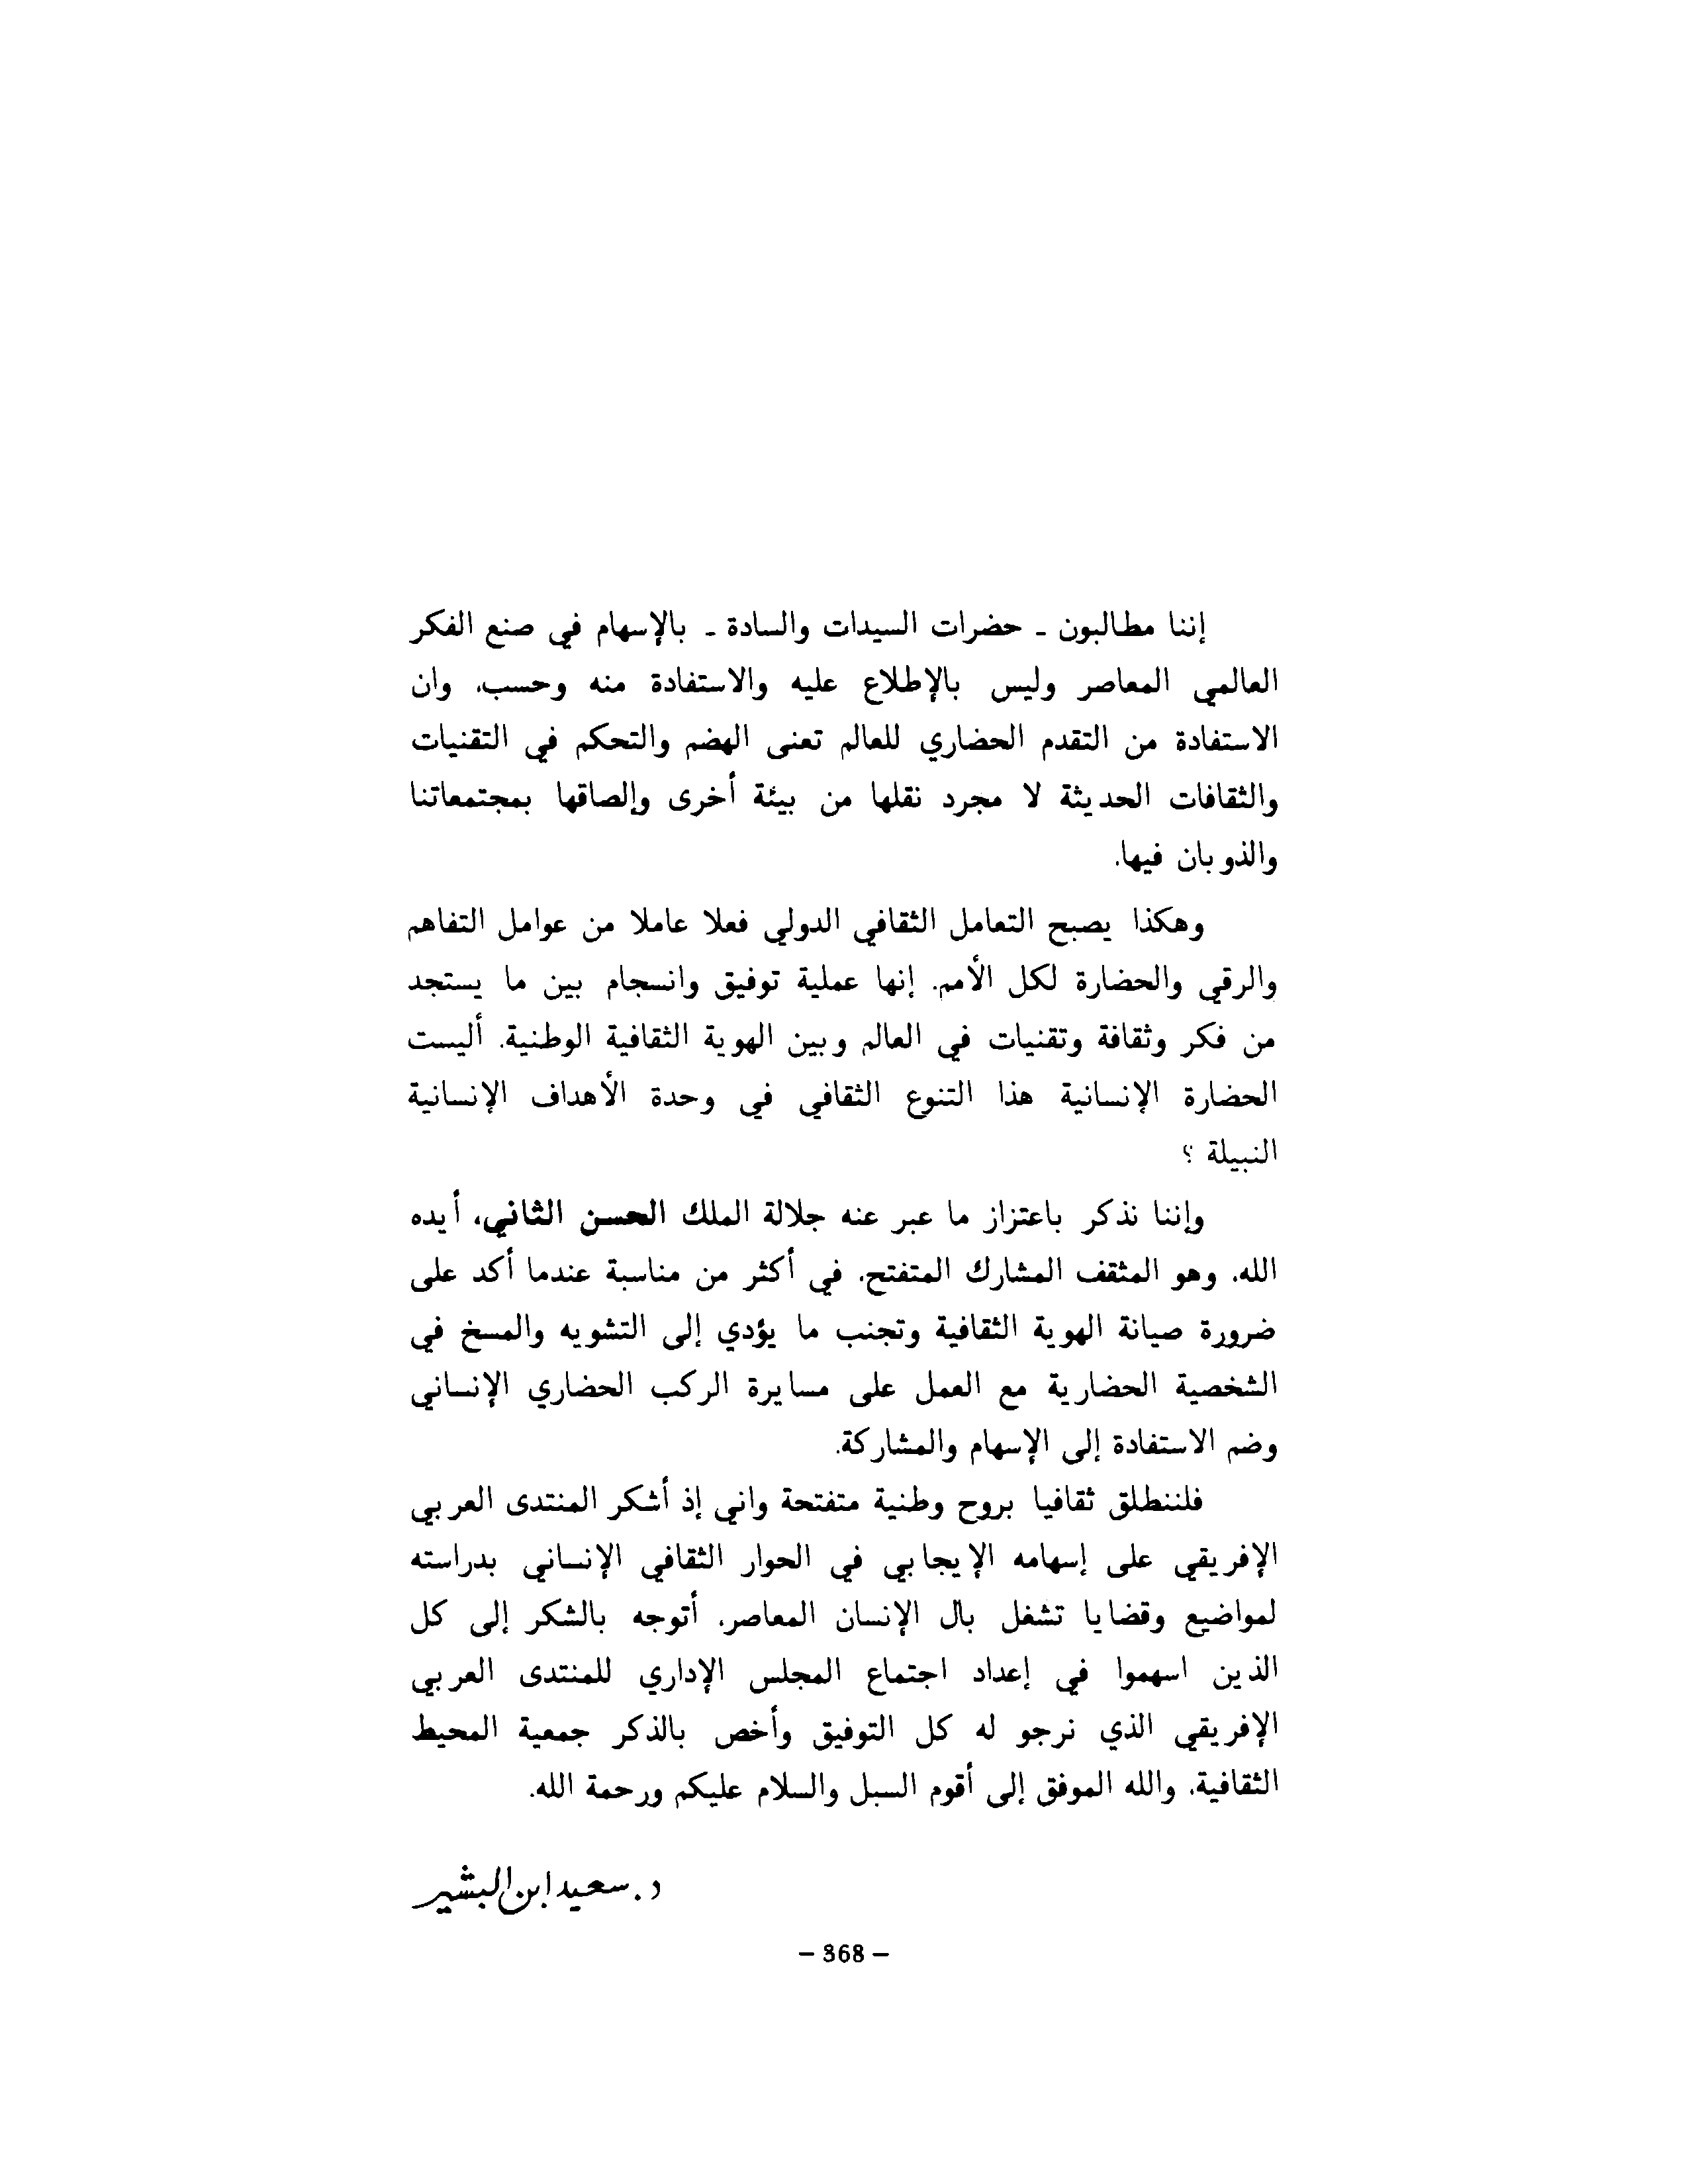 إننا مطالبون ـ حضرات السيدات والسادة ـ بالإسهام في صنع الفكر
العالمي المعاصر وليس بالإطلاع عليه والاستفادة منه وحسب، وان
الاستفادة من التقدم الحضاري للعالم تعنى الهضم والتحكم في التقنيات
والثقافات الحديثة لا مجرد نقلها من بيئة أخرى وإلصاقها بمجتمعاتنا
والذوبان فيها.
وهكذا يصبح التعامل الثقافي الدولي فعلا عاملا من عوامل التفاهم
والرقي والحضارة لكل الأمم. إنها عملية توفيق وانسجام بين ما يستجد
من فكر وثقافة وتقنيات في العالم وبين الهوية الثقافية الوطنية. أليست
الحضارة الإنسانية هذا التنوع الثقافي في وحدة الأهداف الإنسانية
النبيلة ؟
وإننا نذكر باعتزاز ما عبر عنه جلالة الملك الحسن الثاني، أيده
الله، وهو المثقف المشارك المتفتح، في أكثر من مناسبة عندما أكد على
ضرورة صيانة الهوية الثقافية وتجنب ما يؤدي إلى التشويه والمسخ في
الشخصية الحضارية مع العمل على مسايرة الركب الحضاري الإنساني
وضم الاستفادة إلى الإسهام والمشاركة.
فلننطلق ثقافيا بروح وطنية متفتحة واني إذ أشكر المنتدى العربي
الإفريقي على إسهامه الإيجابي في الحوار الثقافي الإنساني بدراسته
لمواضيع وقضايا تشغل بال الإنسان المعاصر، أتوجه بالشكر إلى كل
الذين اسهموا في إعداد اجتماع المجلس الإداري للمنتدى العربي
الإفريقي الذي نرجو له كل التوفيق وأخص بالذكر جمعية المحيط
الثقافية، والله الموفق إلى أقوم السبل والسلام عليكم ورحمة الله.
د. سعيد ابن البشير
– 368 –